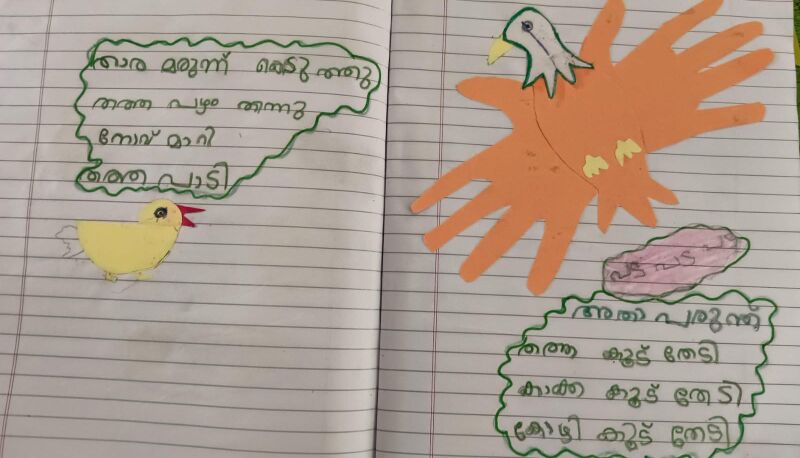 താര മരുന്ന് കൊടുത്തു
തത്ത പഴം തിന്നു
നോവ് മാറി
തത്ത പാടി
പട പട പട
അതാ പരുന്ത്
തത്ത കൂട് തേടി
കാക്ക കൂട് തേടി
കോഴി കൂട് തേടി